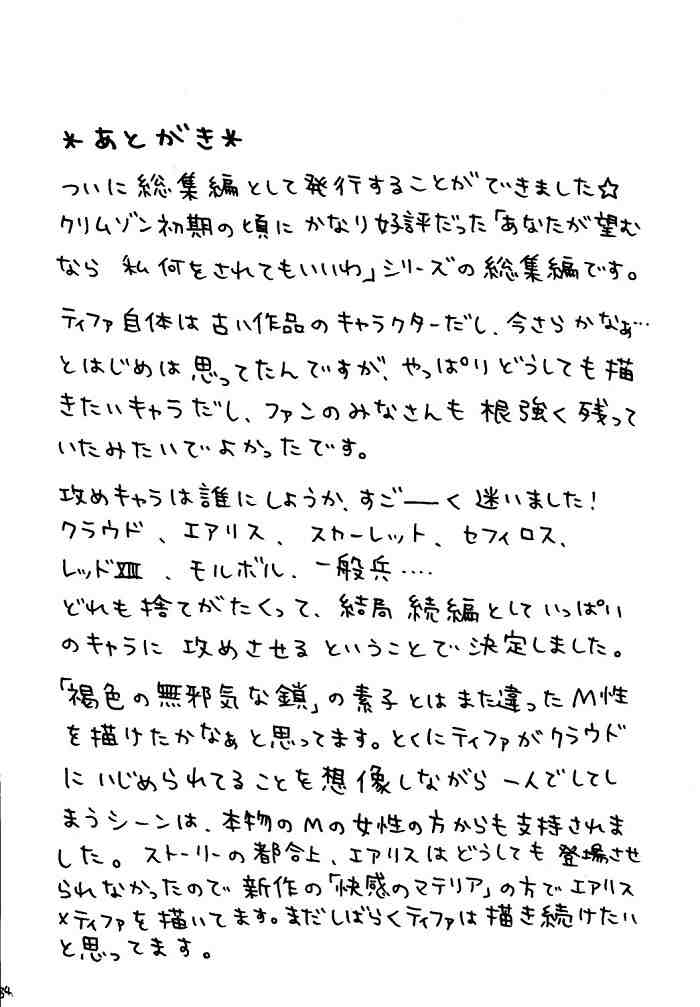 *あとがき*
ついに総集編として発行することができました☆
クリムゾン初期の頃にかなり好評だった「あなたが望む
なら 私何をされてもいいわ」シリーズの総集編です。
ティファ自体は古い作品のキャラクターだし、今さらかなぁ…
とはじめは思ってたんですが、やっぱりどうしても描
きたいキャラだし、ファンのみなさんも根強く残って
いたみたいでよかったです。
攻めキャラは誰にしようか、すごーく迷いました!
クラウド、エアリス、スカーレット、セフィロス、
レッドXIII、モルボル、一般兵‥‥
どれも捨てがたくって、結局続編としていっぱい
のキャラに攻めさせるということで決定しました。
「褐色の無邪気な鎖」の素子とはまた違ったM性
を描けたかなぁと思ってます。とくにティファがクラウド
にいじめられてることを想像しながら一人でしてし
まうシーンは、本物のMの女性の方からも支持されま
した。ストーリーの都合上、エアリスはどうしても登場させ
られなかったので新作の「快感のマテリア」の方でエアリス
×ティファを描いてます。まだしばらくティファは描き続けたい
と思ってます。
34